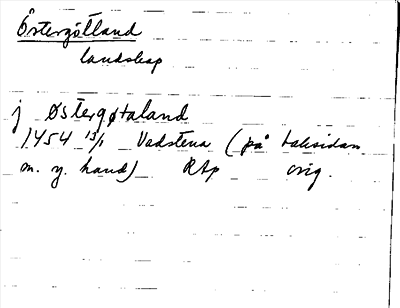 Östergötland
landskap
j Østergøtaland
1454 13/1 Vadstena (på baksidan
m. y. hand) RAp orig.